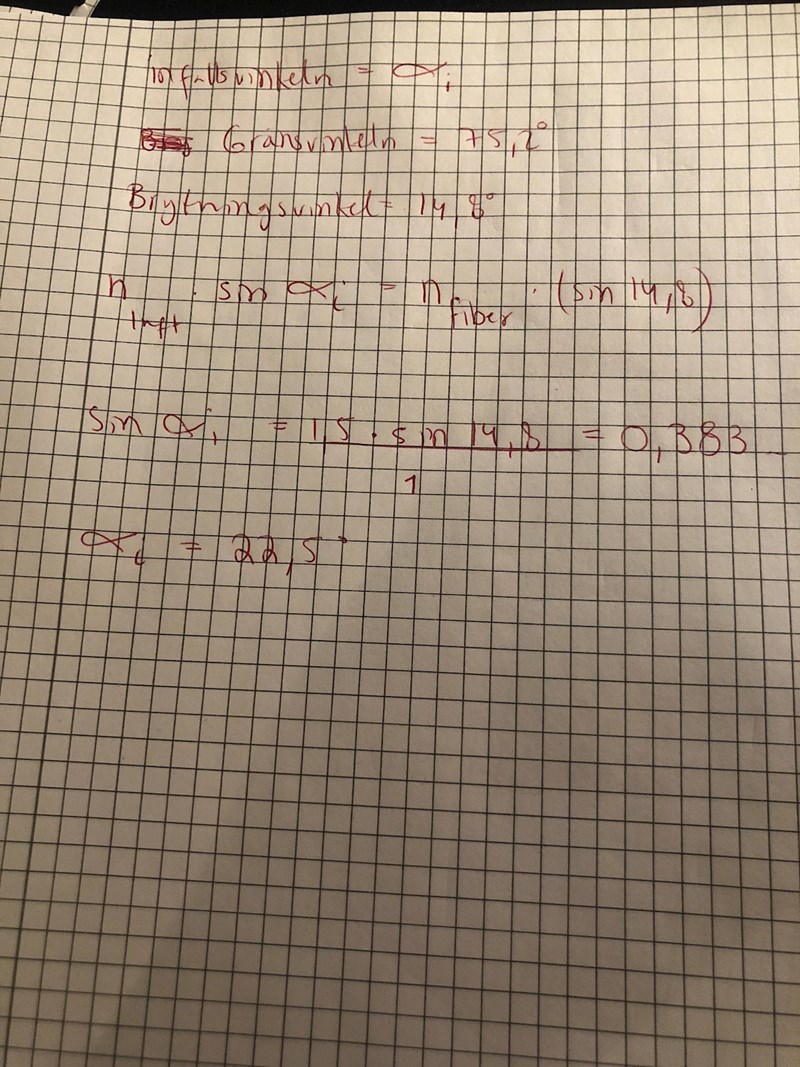 infallsvinkeln = αi
Gränsvinkeln = 75,2°
Brytningsvinkel = 14,8°
n luft · sin αi = n fiber · (sin 14,8)
sin αi = 1,5 · sin 14,8 / 1 = 0,383
αi = 22,5°